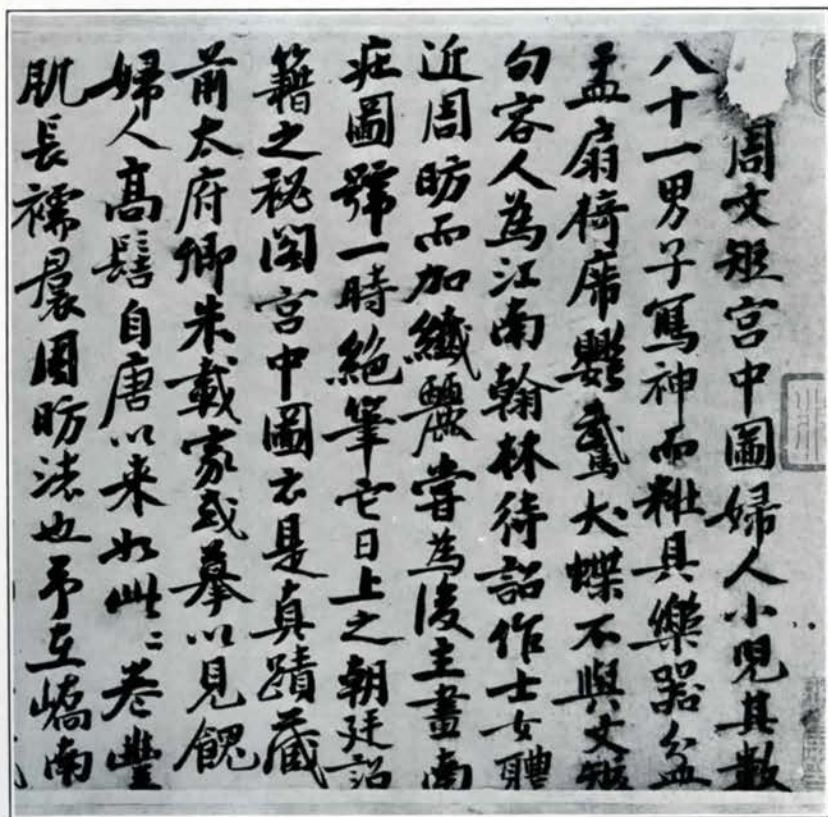 周文矩宮中圖婦人小兒其數
八十一男子寫神而粧具樂器盆
盂扇椅席鸚鵡犬蝶不與文矩
句容人為江南翰林待詔作士女體
近周昉而加纖麗嘗為後主畫南
莊圖號一時絕筆亡日上之朝廷詔
籍之秘閣宮中圖云是真蹟藏
前太府卿朱載家或摹以見餽
婦人高髻自唐以来如此〻卷豐
肌長襦裙周昉法也予在嶠南